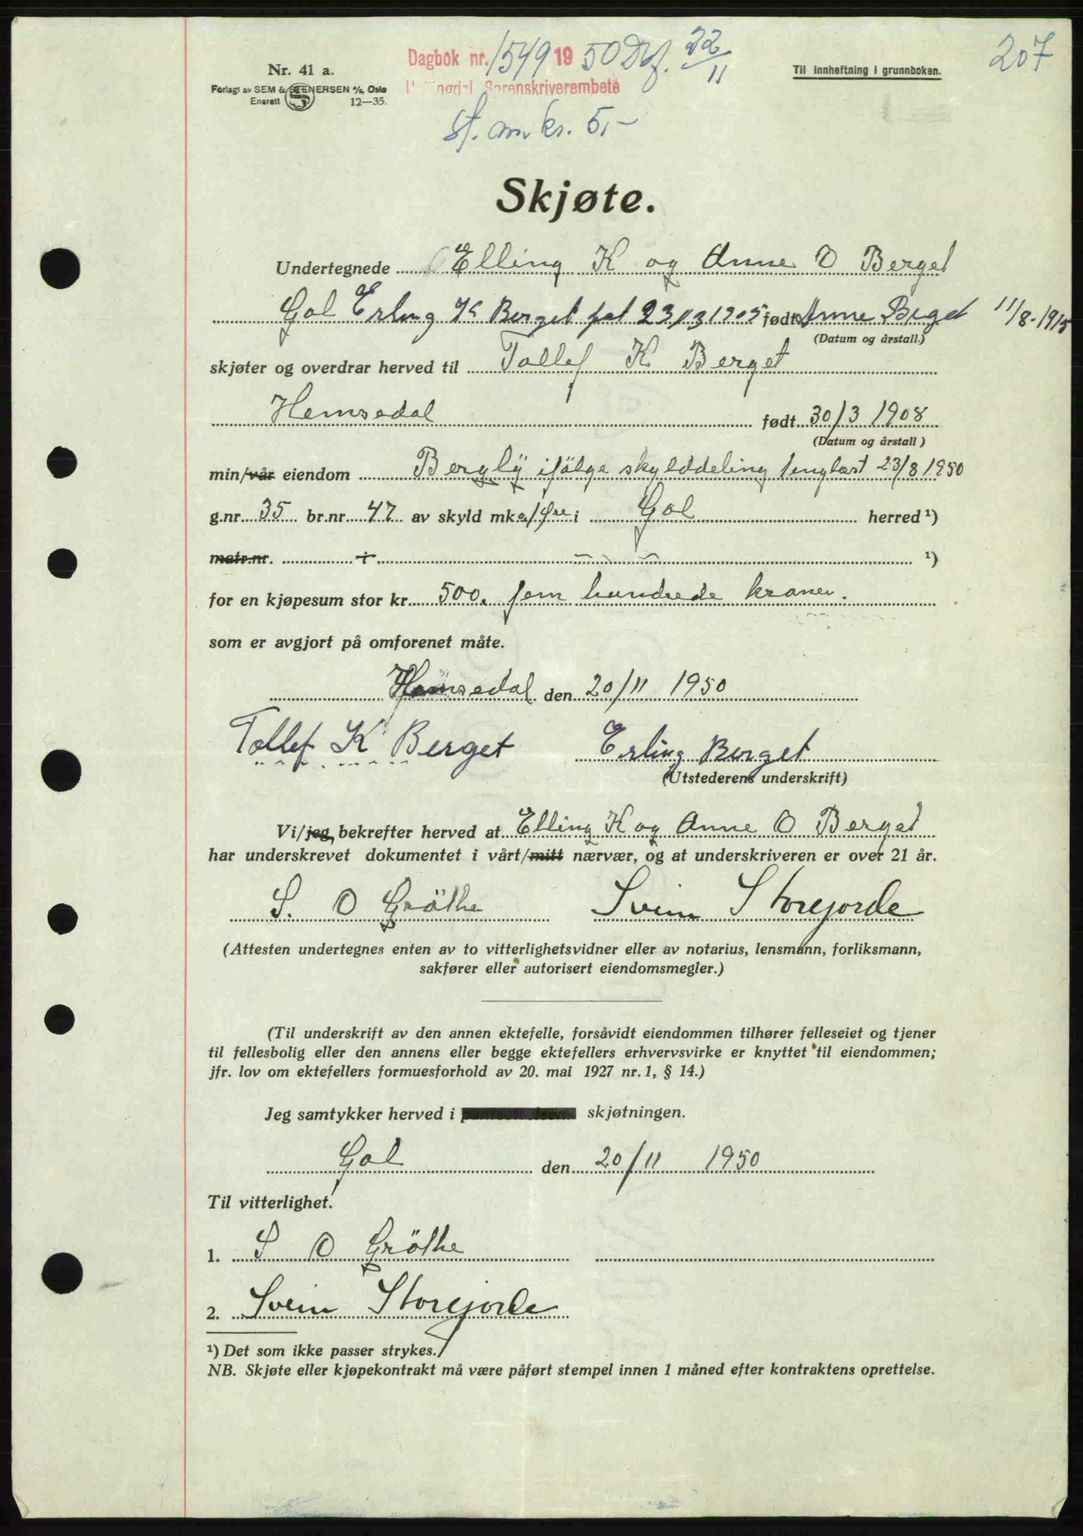 Dagbok nr. 1549 1950 Def. 22/11
Sorenskriverembete
207
Nr. 41 a.
Forlagt av SEM & STENERSEN A/S, Oslo
Enerett 12—35.
Til innheftning i grunnboken.
st. m. kr. 5.-
Skjøte.
Undertegnede Elling K og Anne O Berget
Gol Erling K Berget føt 23/3 1905 født Anne Beget 11/8-1915
(Datum og årstall.)
skjøter og overdrar herved til Tollef K Berget
Hemsedal født 30/3 1908
(Datum og årstall)
min/vår eiendom Bergly ifölge skylddeling tinglæst 23/8 1950
g.nr. 35 br.nr. 47 av skyld mk. øre i Gol herred ¹)
matr.nr. i ¹)
for en kjøpesum stor kr. 500. fem hundrede kroner.
som er avgjort på omforenet måte.
Hemsedal den 20/11 1950
Tollef K Berget Erling Berget
(Utstederens underskrift)
Vi/jeg bekrefter herved at Elling K og Anne O Berget
har underskrevet dokumentet i vårt/mitt nærvær, og at underskriveren er over 21 år.
S. O Gröthe Svein Storejorde
(Attesten undertegnes enten av to vitterlighetsvidner eller av notarius, lensmann, forliksmann,
sakfører eller autorisert eiendomsmegler.)
(Til underskrift av den annen ektefelle, forsåvidt eiendommen tilhører felleseiet og tjener
til fellesbolig eller den annens eller begge ektefellers erhvervsvirke er knyttet til eiendommen;
jfr. lov om ektefellers formuesforhold av 20. mai 1927 nr. 1, § 14.)
Jeg samtykker herved i skjøtningen.
Gol den 20/11 1950
Til vitterlighet.
1. S O Gröthe
2. Svein Storejorde
¹) Det som ikke passer strykes.
NB. Skjøte eller kjøpekontrakt må være påført stempel innen 1 måned efter kontraktens oprettelse.